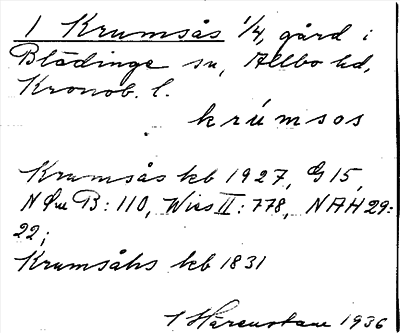 1 Krumsås 1/4, gård i
Blädinge sn, Allbo hd,
Kronob. l.
krúmsos
Krumsås kb 1927, G 15,
B: 110, Wies II: 778, NAH 29:
22;
Krumsåhs kb 1831
1936